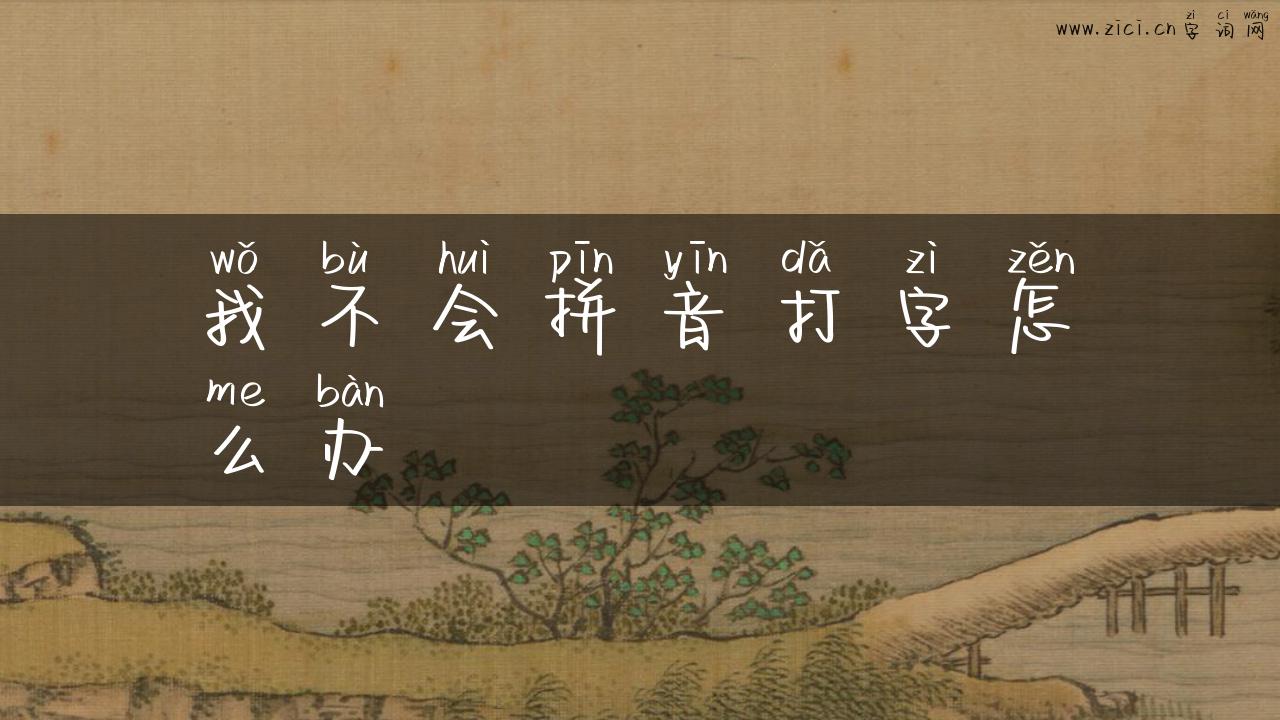 zì cí wǎng
www.zici.cn 字 词 网
wǒ bù huì pīn yīn dǎ zì zěn
我 不 会 拼 音 打 字 怎
me bàn
么 办